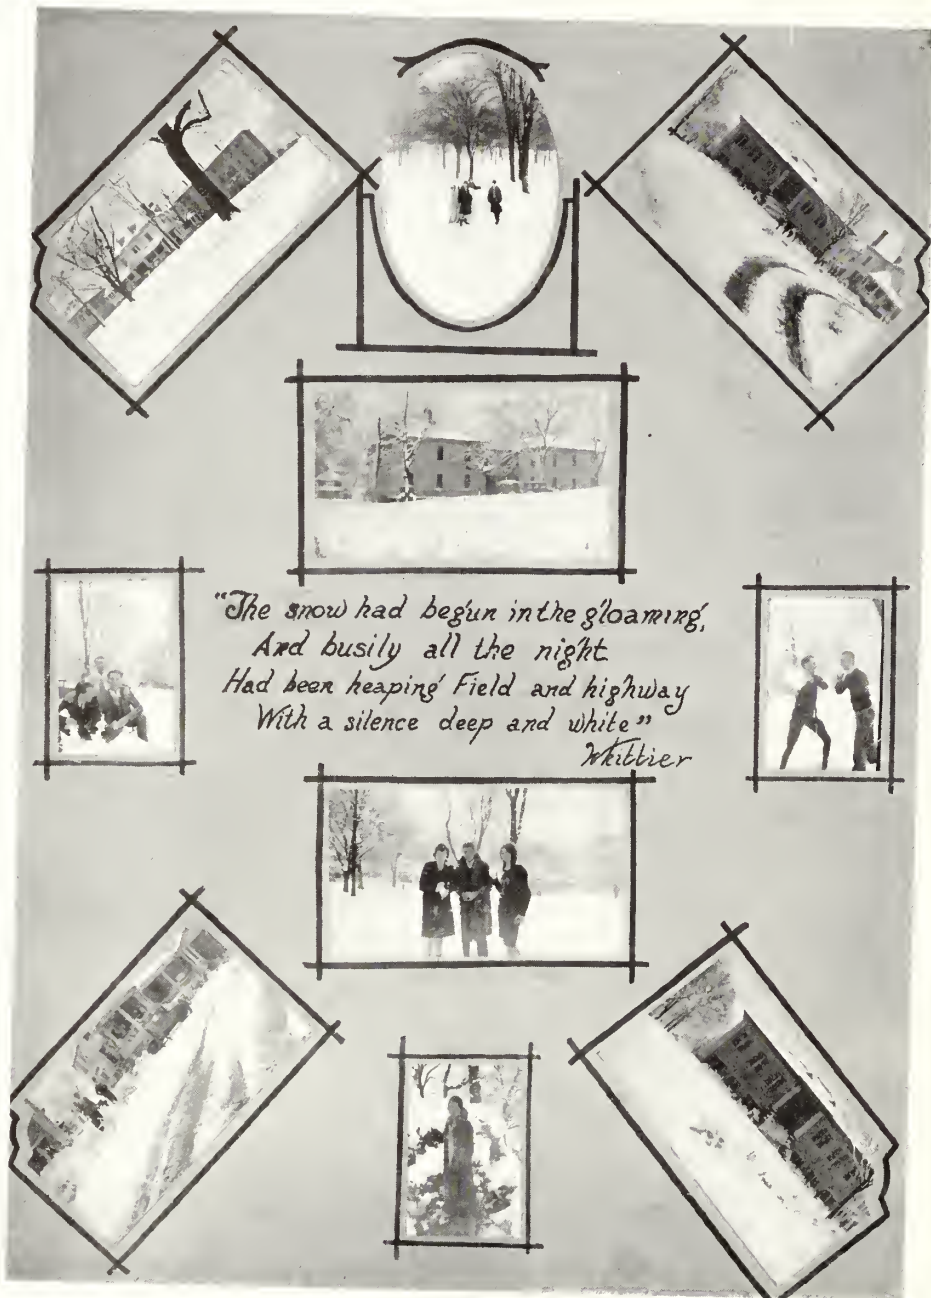 "The snow had begun in the gloaming,
And busily all the night
Had been heaping Field and highway
With a silence deep and white"
Whittier